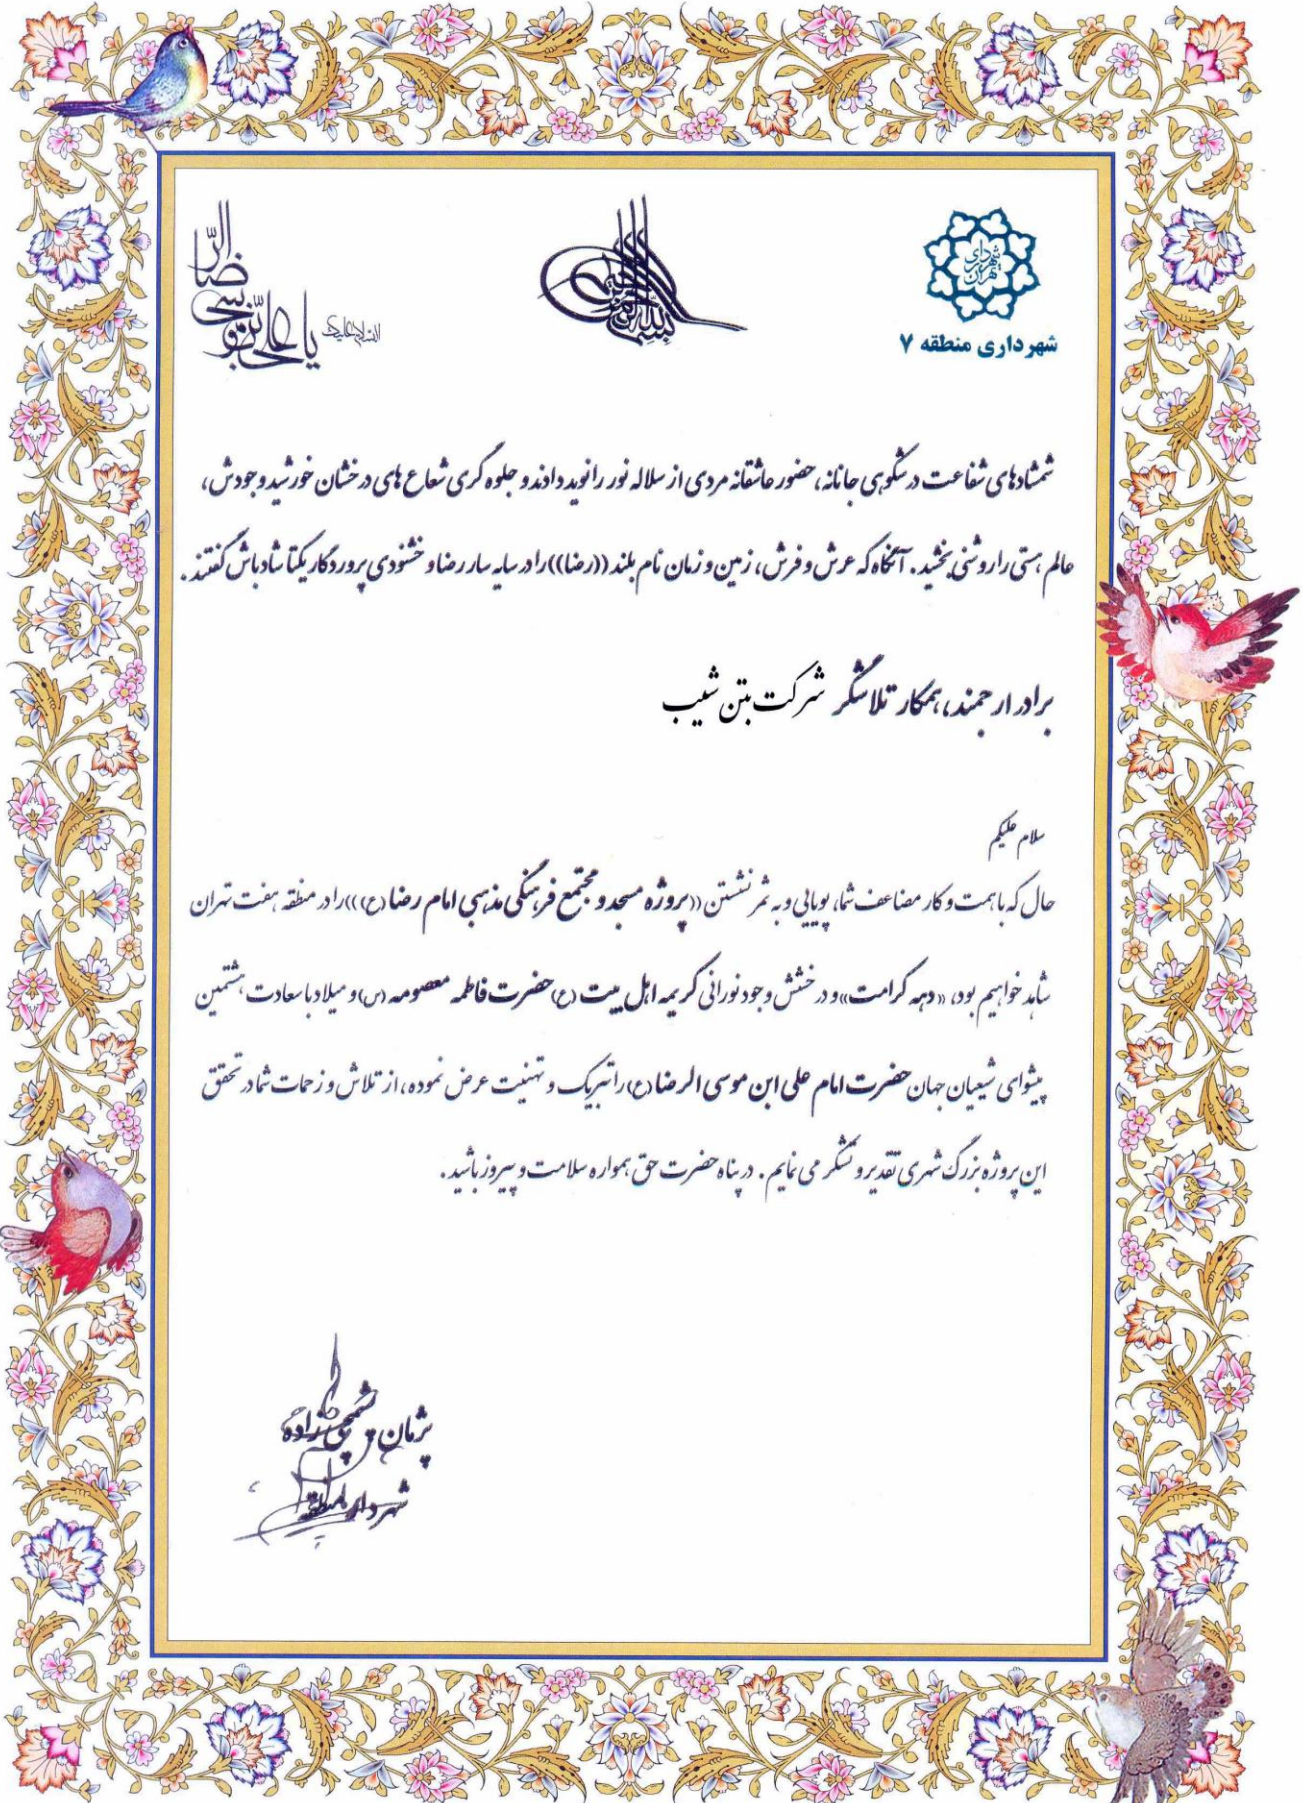 شهرداری تهران
شهرداری منطقه ۷
بسم الله الرحمن الرحیم
السلام علیک
یا علی بن موسی الرضا
شمشادهای شفاعت در شکوهی جانانه، حضور عاشقانه مردی از سلاله نور را نوید دادند و جلوه گری شعاع های درخشان خورشید وجودش،
عالم هستی را روشنی بخشید. آنگاه که عرش و فرش، زمین و زمان نام بلند ((رضا)) را در سایه سار رضا و خشنودی پروردگار یکتا شادباش گفتند.
برادر ارجمند، همکار تلاشگر شرکت بتن شیب
سلام علیکم
حال که با همت و کار مضاعف شما، پویایی و به ثمر نشستن ((پروژه مسجد و مجتمع فرهنگی مذهبی امام رضا (ع))) را در منطقه هفت تهران
شاهد خواهیم بود، «دهه کرامت» و درخشش وجود نورانی کریمه اهل بیت (ع) حضرت فاطمه معصومه (س) و میلاد با سعادت هشتمین
پیشوای شیعیان جهان حضرت امام علی ابن موسی الرضا (ع) را تبریک و تهنیت عرض نموده، از تلاش و زحمات شما در تحقق
این پروژه بزرگ شهری تقدیر و تشکر می نمایم. در پناه حضرت حق همواره سلامت و پیروز باشید.
پژمان پشمچی زاده
شهردار منطقه